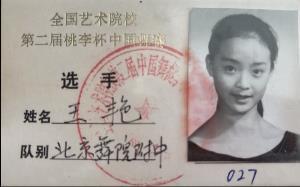 全国艺术院校
第二届桃李杯中国舞
选手
姓名 王艳
队别 北京舞院附中
027